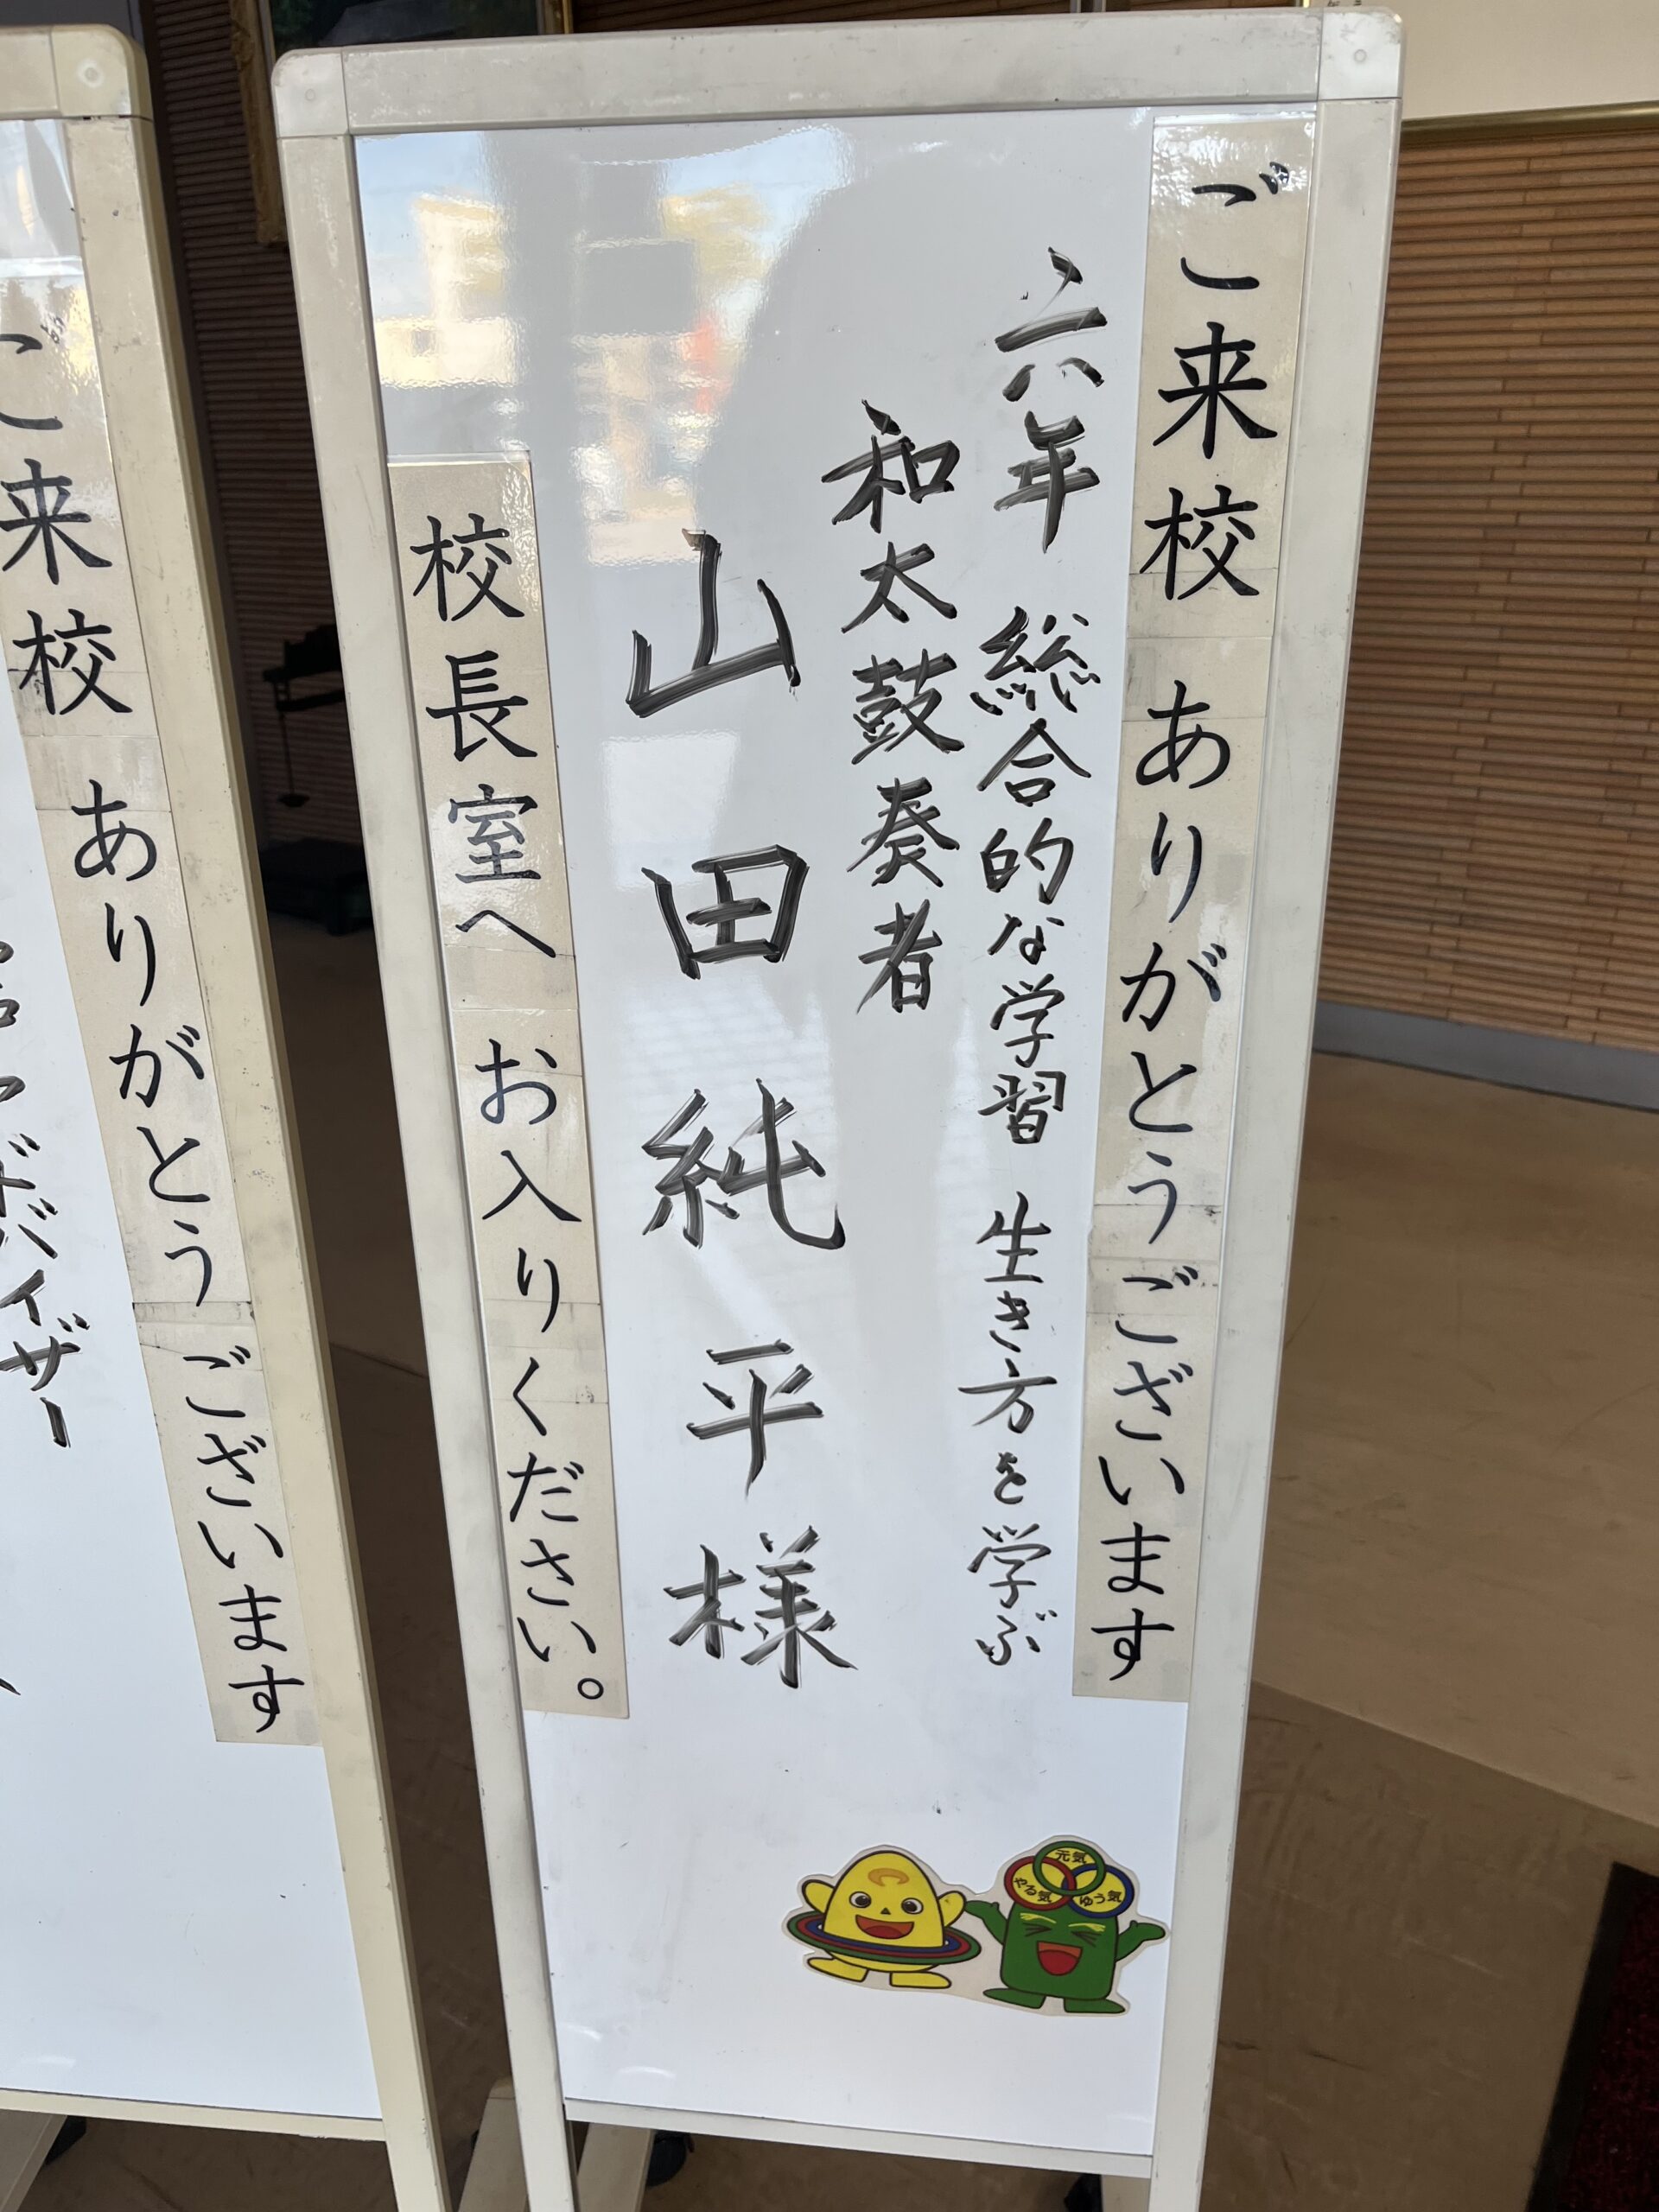 ご来校 ありがとうございます
六年 総合的な学習 生き方を学ぶ
和太鼓奏者
山田純平様
校長室へ お入りください。
元気
やる気
ゆう気
ご来校 ありがとうございます
ドバイザー